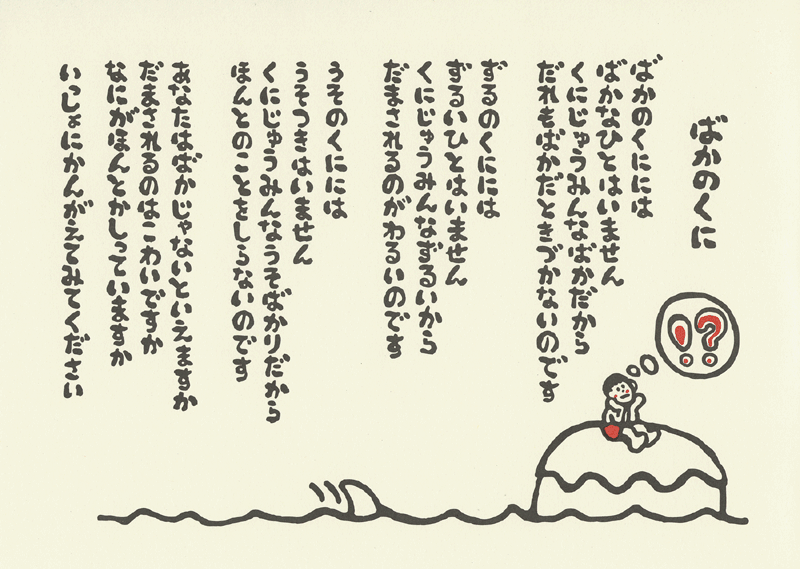 ばかのくに
ばかのくにには
ばかなひとはいません
くにじゅうみんなばかだから
だれもばかだときづかないのです
ずるのくにには
ずるいひとはいません
くにじゅうみんなずるいから
だまされるのがわるいのです
うそのくにには
うそつきはいません
くにじゅうみんなうそばかりだから
ほんとのことをしらないのです
あなたはばかじゃないといえますか
だまされるのはこわいですか
なにがほんとかしっていますか
いっしょにかんがえてみてください
!?